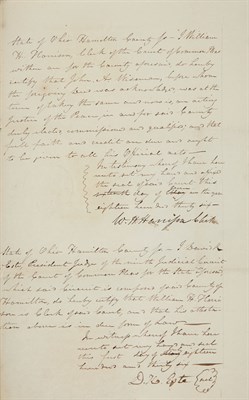 State of Ohio Hamilton County ss I William
H. Harrison Clerk of the Court of Common Pleas
within and for the County aforesaid, do hereby
certify that John A. Wiseman, before whom
the foregoing was acknowledged, was at the
time of taking the same and now is an acting
Justice of the Peace in and for said County
duly elected commissioned and qualified, and that
full faith and credit are due and ought
to be given to all his official acts
In testimony whereof I have here
unto set my hand and affixed
the seal of said Court this
day of in the year
eighteen hundred and thirty six
W. H. Harrison Clerk
State of Ohio Hamilton County ss I
Este President Judge of the ninth Judicial Circuit
of the Court of Common Pleas for the State of Ohio
which said Circuit is composed of said County of
Hamilton, do hereby certify that William H. Harri
son is Clerk of said County and that his attesta
tion above is in due form of Law
In witness whereof I have here
unto set my hand and seal
this first day of eighteen
hundred and thirty six
D. K. Este